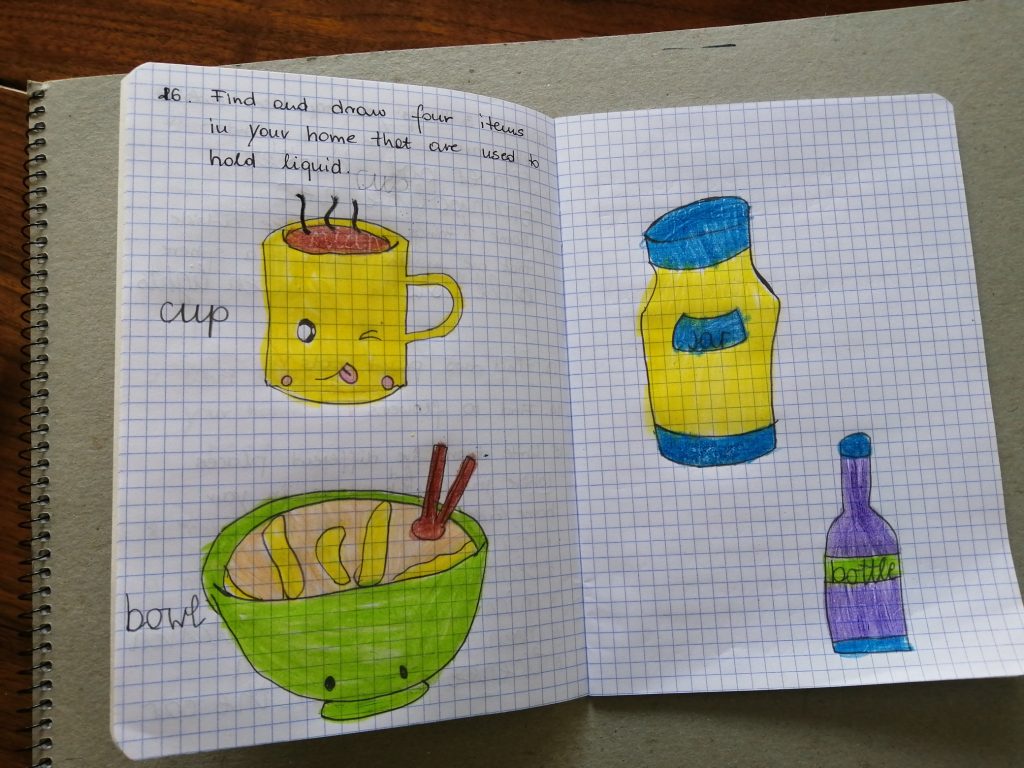 26. Find and draw four items
in your home that are used to
hold liquid.
cup
cup
bowl
jar
bottle